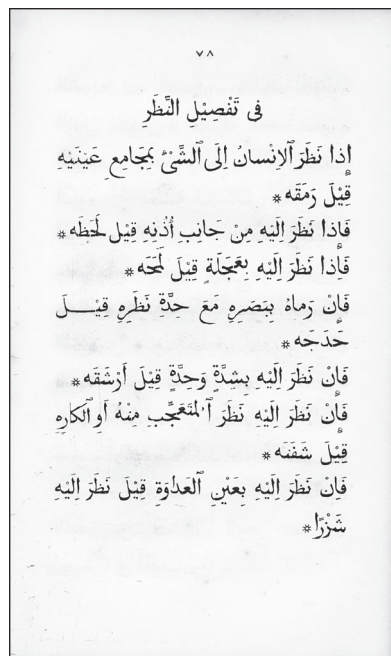 ٧٨
فى تَفْصِيْلِ النَّظَر
إِذا نَظَرَ ٱلاِنْسانُ اِلَى ٱلشَّىْءِ بِمَجامِعِ عَيْنَيْهِ
قِيْلَ رَمَقَه *
فَاِذا نَظَرَ اِلَيْهِ مِنْ جَانِبِ أُذْنِهِ قِيْل لَحَظَه *
فَاِذا نَظَرَ اِلَيْهِ بِعَجَلَةٍ قِيْلَ لَمَحَه *
فَاِنْ رَماهُ بِبَصَرِهِ مَعَ حِدَّةِ نَظَرِهِ قِيْــلَ
حَدَجَه *
فَاِنْ نَظَرَ اِلَيْهِ بِشِدَّةٍ وَحِدَّةٍ قِيْلَ أَرْشَقَه *
فَاِنْ نَظَرَ اِلَيْهِ نَظَرَ ٱلمُتَعَجِّبِ مِنْهُ أَوِ ٱلكارِهِ
قِيْلَ شَفَنَه *
فَاِنْ نَظَرَ اِلَيْهِ بِعَيْنِ ٱلعَدٰاوَةِ قِيْلَ نَظَرَ اِلَيْهِ
شَزْرًا *